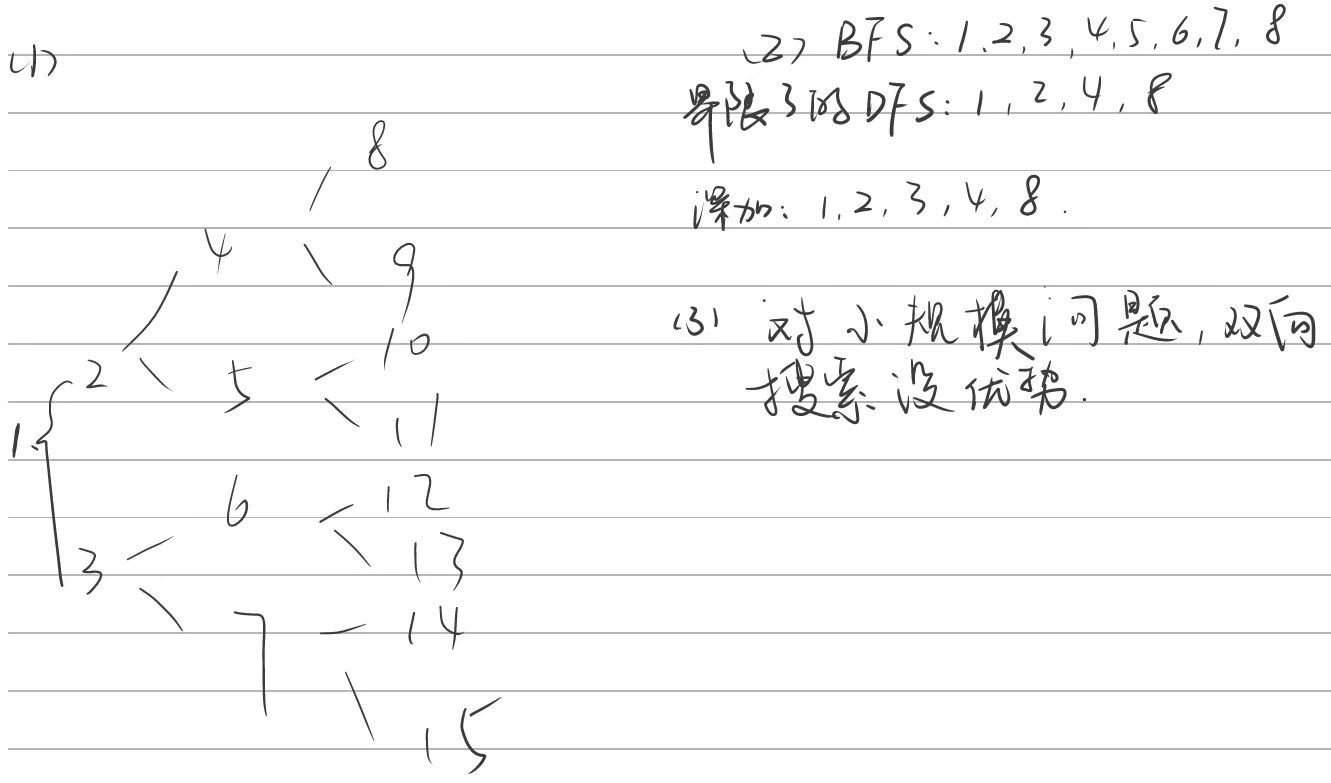 (1)
8
4
9
10
2
5
11
1.
6
12
3
13
7
14
15
(2) BFS: 1, 2, 3, 4, 5, 6, 7, 8
界限3的DFS: 1, 2, 4, 8
深加: 1, 2, 3, 4, 8.
(3) 对小规模问题, 双向
搜索没优势.